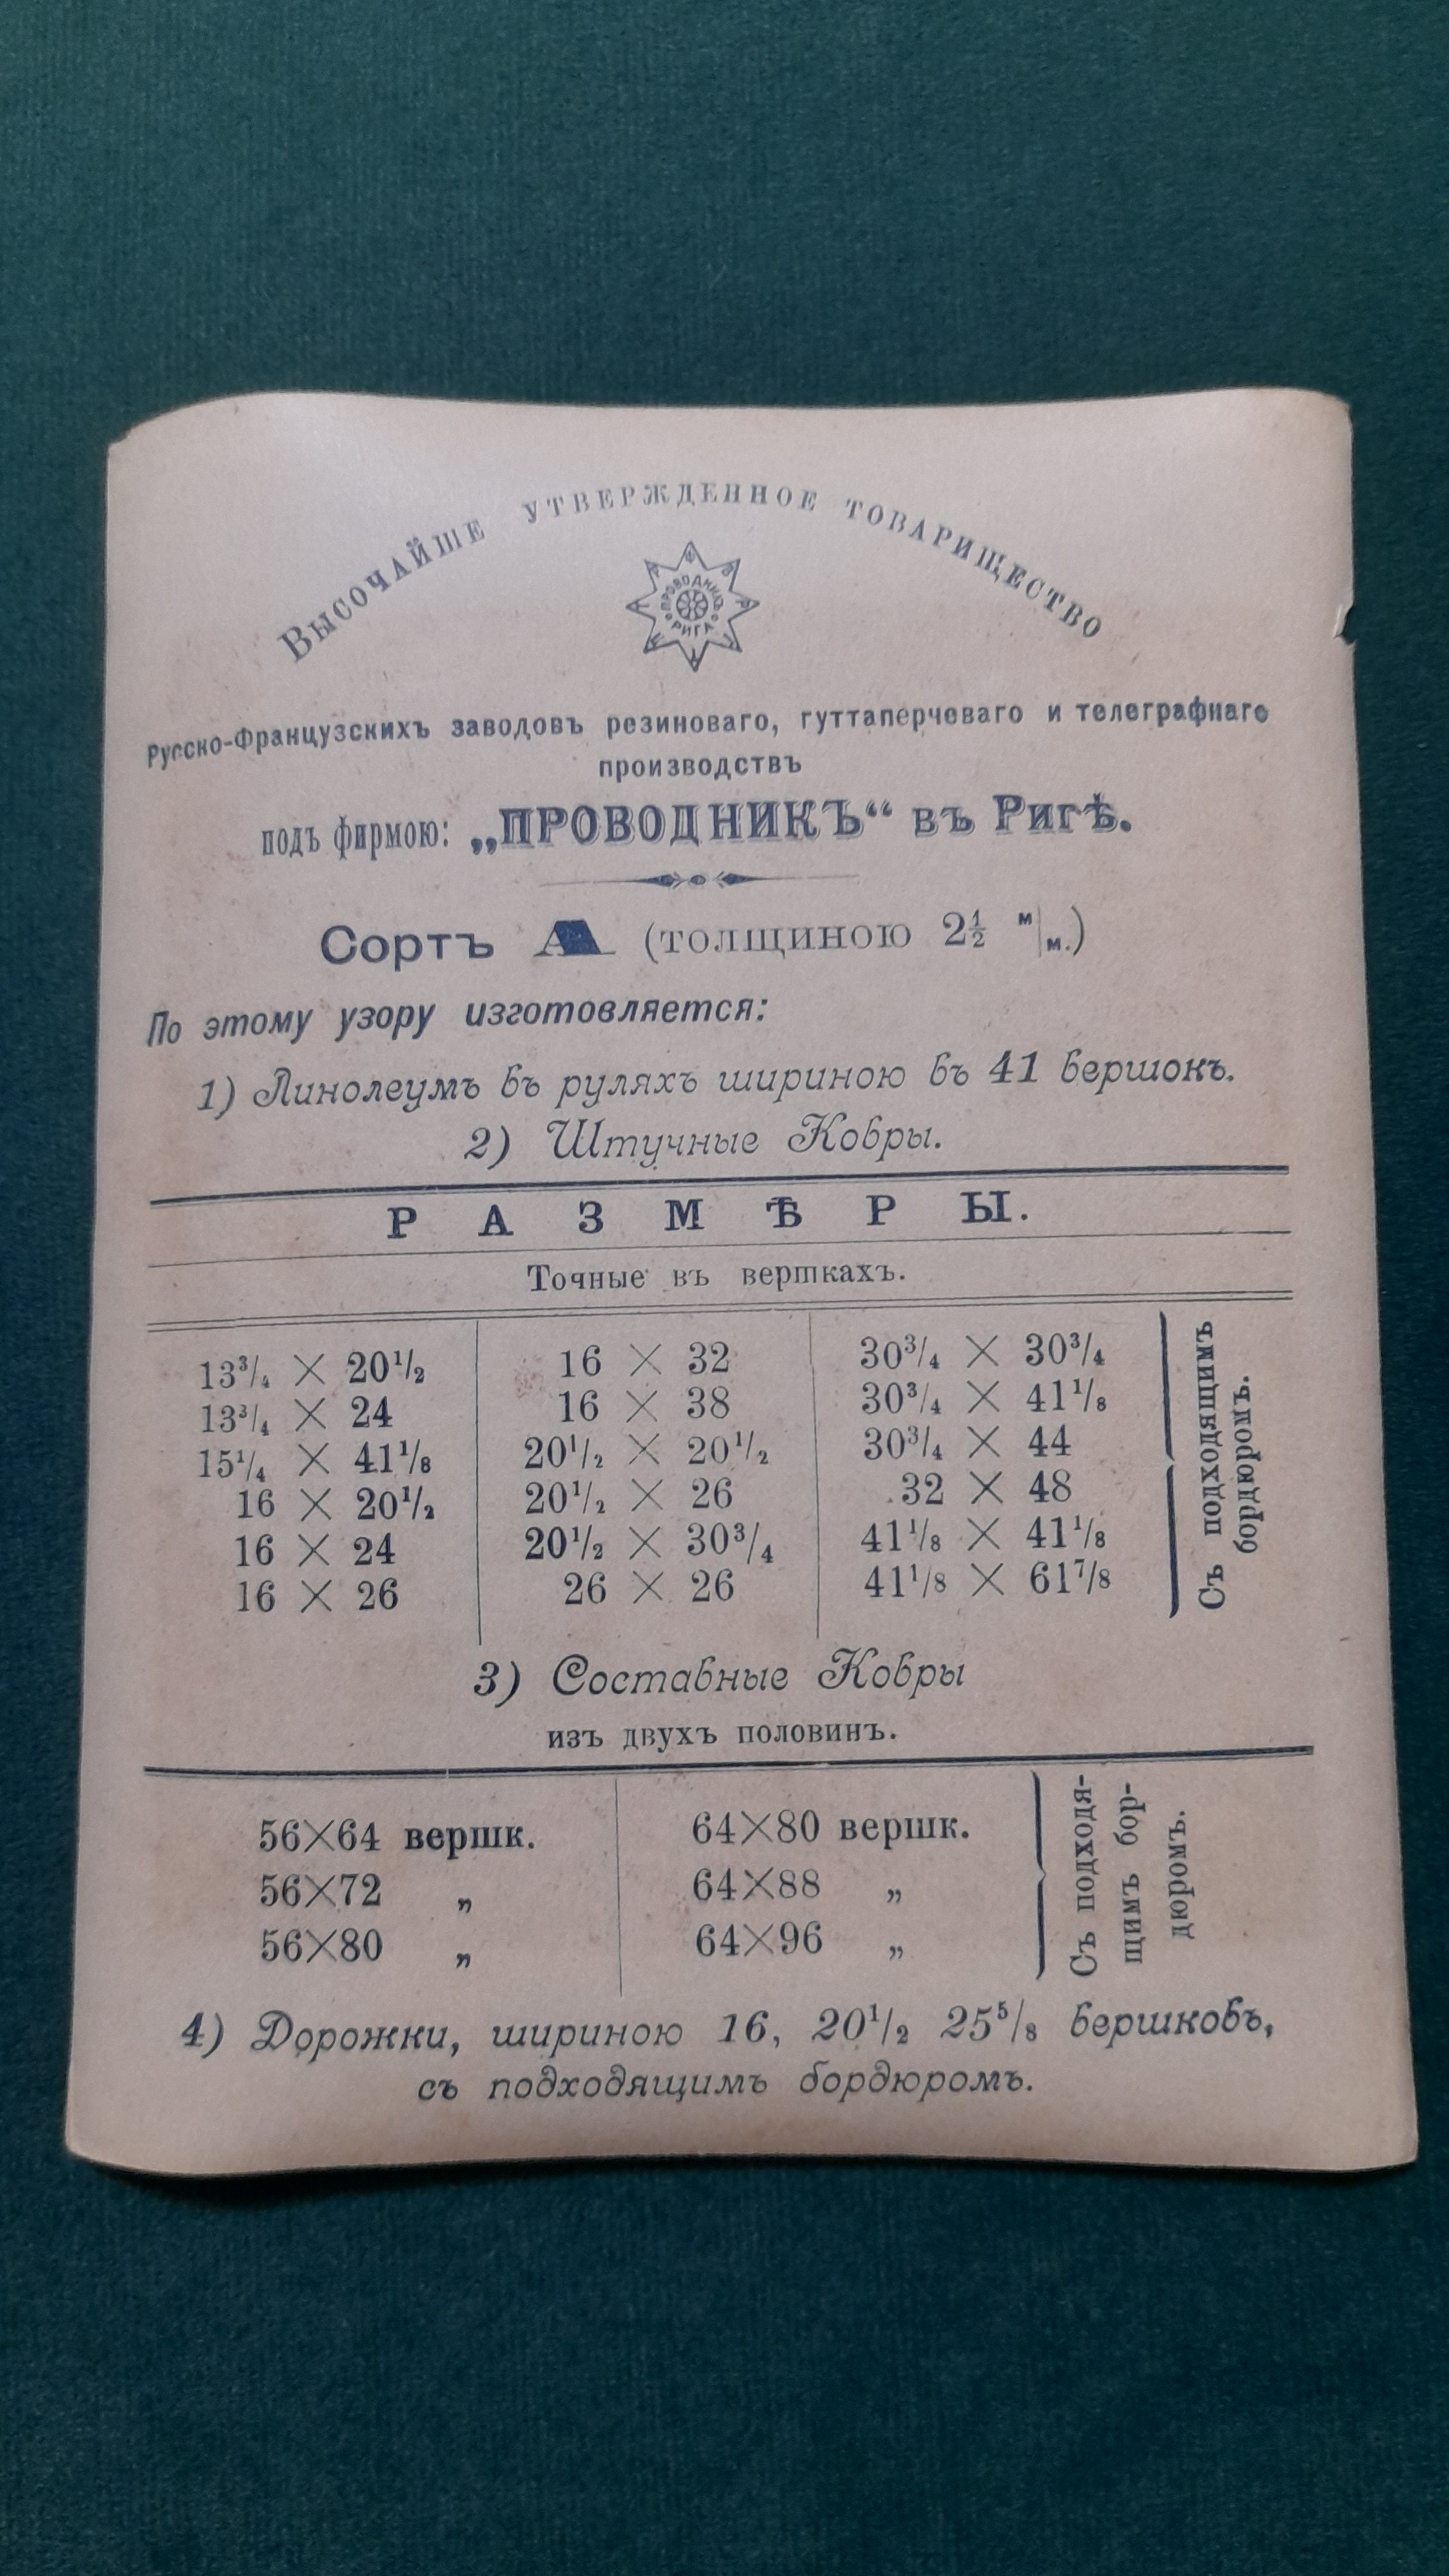 ВЫСОЧАЙШЕ УТВЕРЖДЕННОЕ ТОВАРИЩЕСТВО
ПРОВОДНИКЪ
РИГА
Русско-Французскихъ заводовъ резиноваго, гуттаперчеваго и телеграфнаго
производствъ
подъ фирмою: „ПРОВОДНИКЪ“ въ Ригѣ.
Сортъ А (толщиною 2½ м/м.)
По этому узору изготовляется:
1) Линолеумъ въ руляхъ шириною въ 41 вершокъ.
2) Штучные Ковры.
РАЗМѢРЫ.
Точные въ вершкахъ.
13³/₄ × 20¹/₂ 16 × 32 30³/₄ × 30³/₄
13³/₄ × 24 16 × 38 30³/₄ × 41¹/₈
15¹/₄ × 41¹/₈ 20¹/₂ × 20¹/₂ 30³/₄ × 44
16 × 20¹/₂ 20¹/₂ × 26 32 × 48
16 × 24 20¹/₂ × 30³/₄ 41¹/₈ × 41¹/₈
16 × 26 26 × 26 41¹/₈ × 61⁷/₈
Съ подходящимъ
бордюромъ.
3) Составные Ковры
изъ двухъ половинъ.
56×64 вершк. 64×80 вершк.
56×72 „ 64×88 „
56×80 „ 64×96 „
Съ подходя-
щимъ бор-
дюромъ.
4) Дорожки, шириною 16, 20¹/₂ 25⁵/₈ вершковъ,
съ подходящимъ бордюромъ.